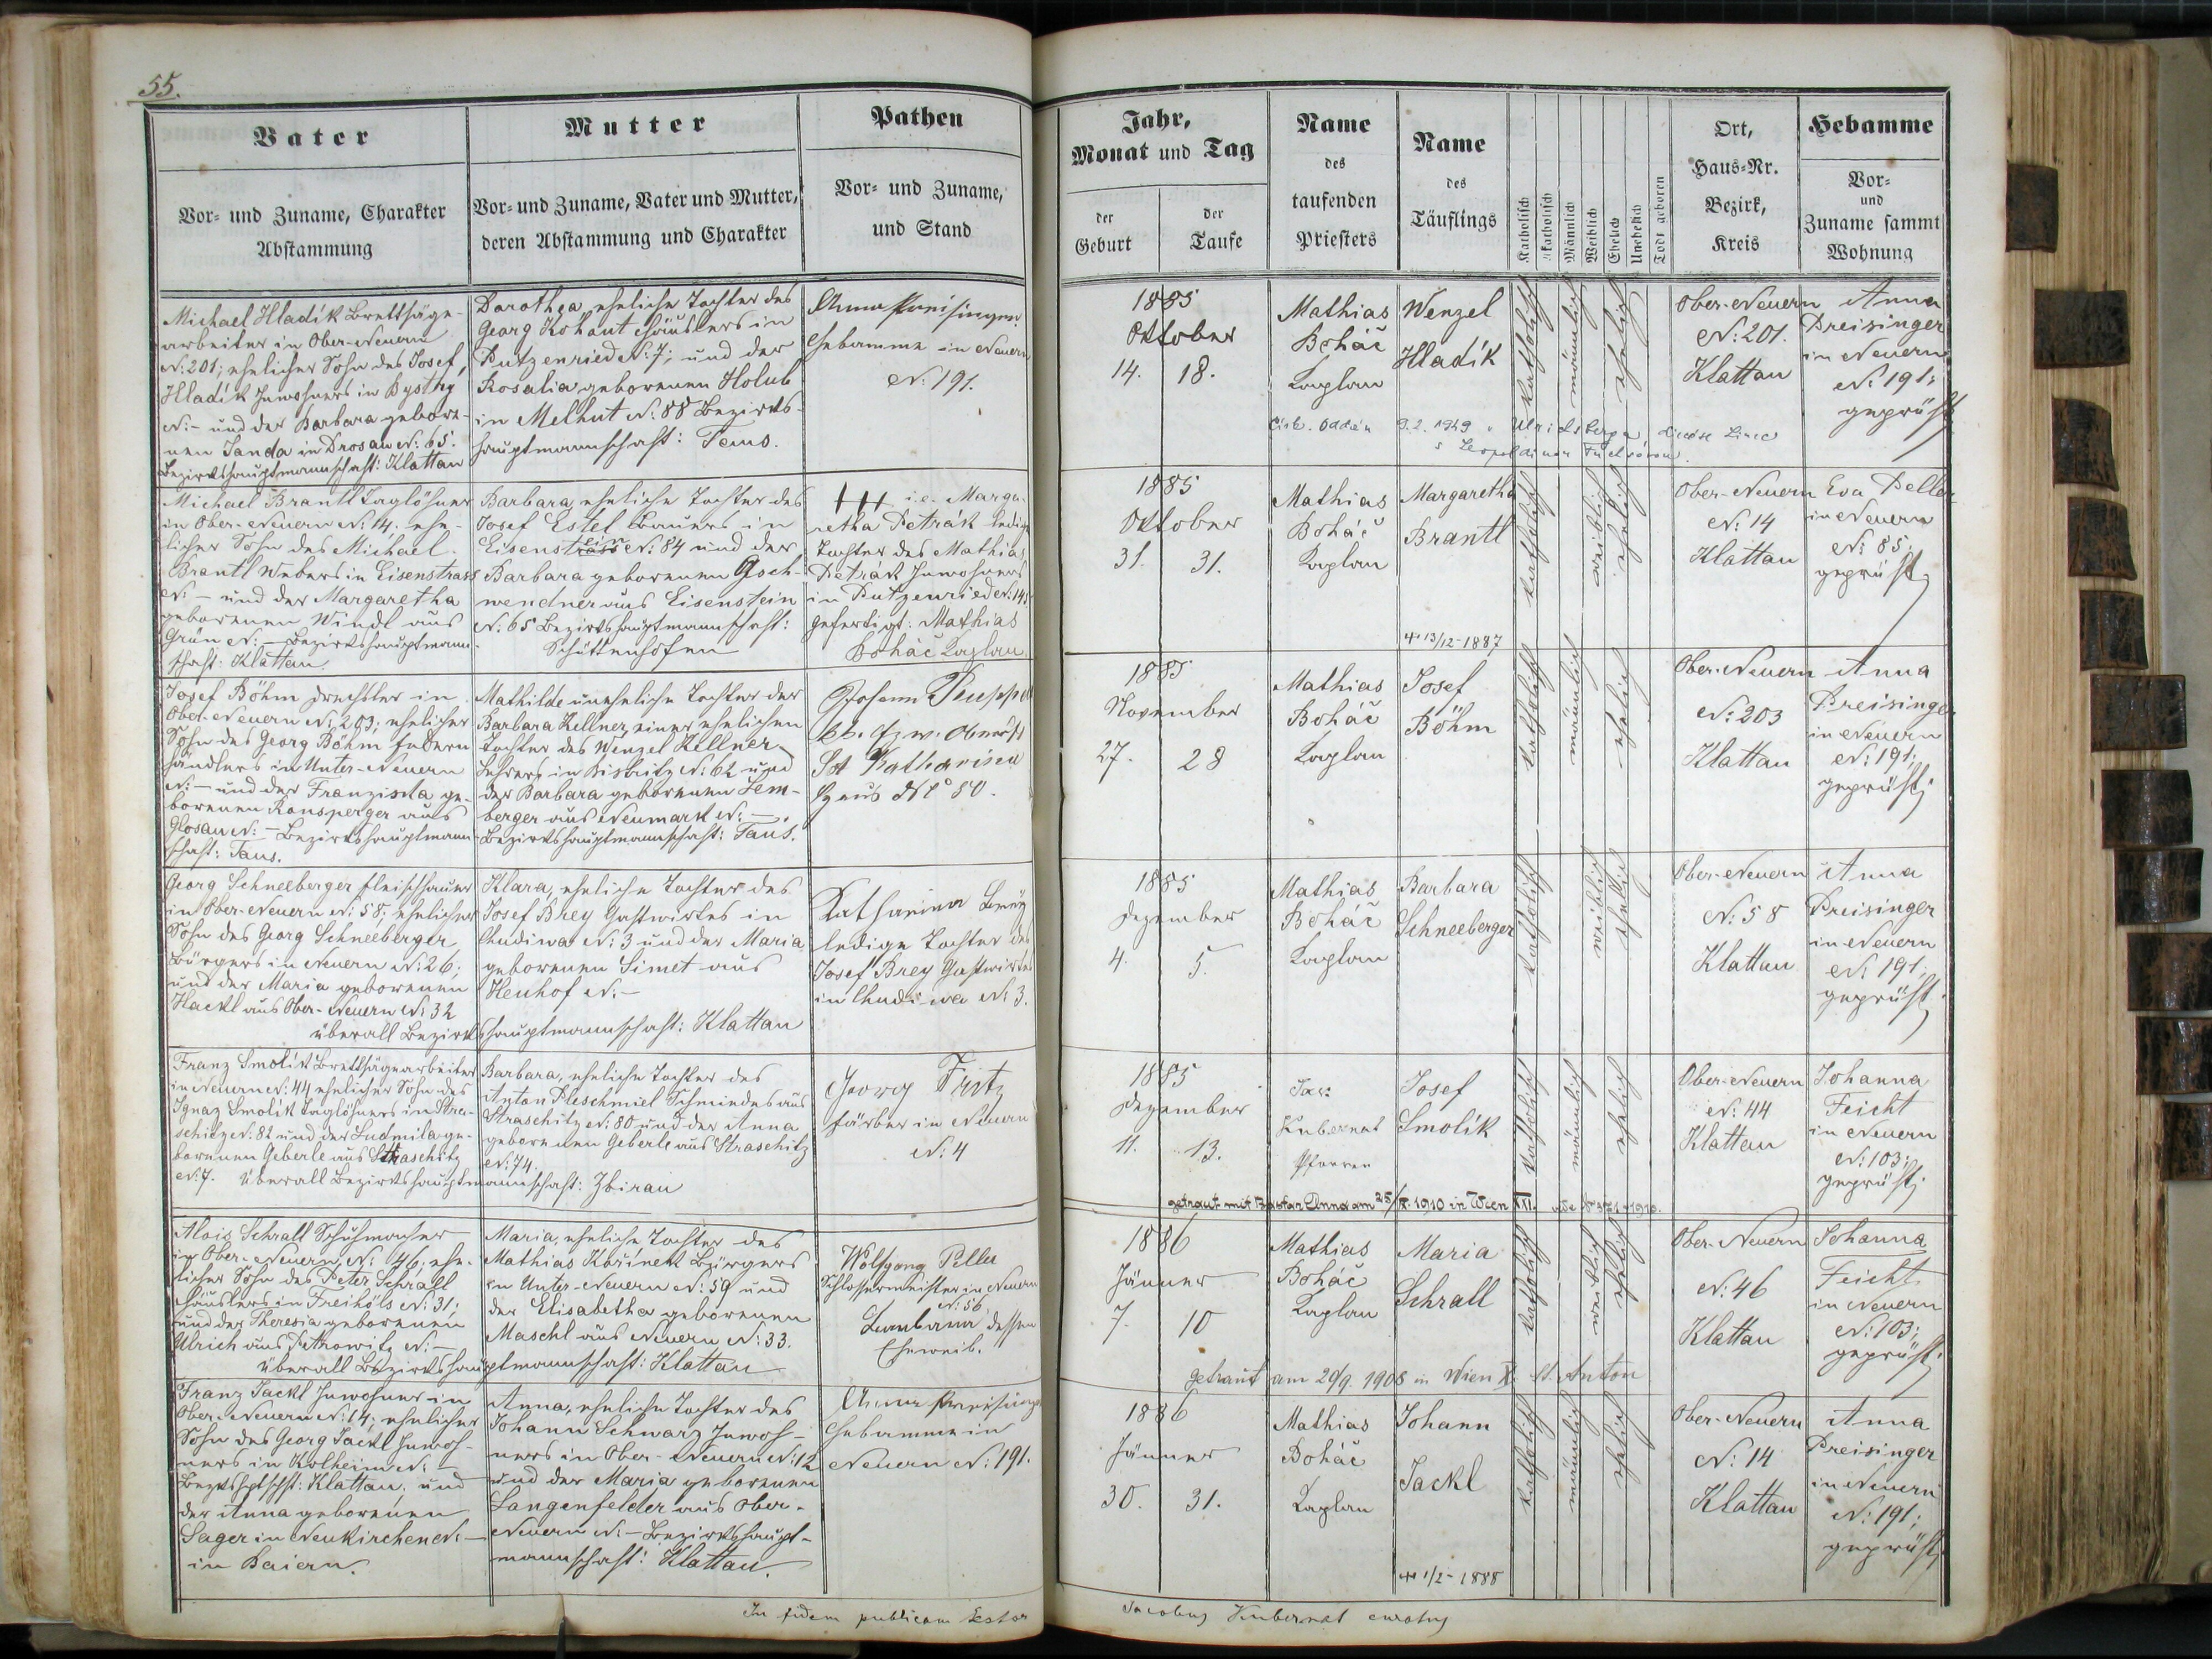 55.
Vater
Mutter
Pathen
Vor- und Zuname, Charakter
Abstammung
Vor- und Zuname, Vater und Mutter,
deren Abstammung und Charakter
Vor- und Zuname,
und Stand
Michael Hladík Brettsäge-
arbeiter in Ober-Neuern
N: 201; ehelicher Sohn des Josef
Hladík Inwohners in Bystry
N: - und der Barbara gebore-
nen Janda in Drosau N: 65.
Bezirkshauptmannschaft: Klattau
Dorothea, eheliche Tochter des
Georg Kohout Häuslers in
Putzenried N: 7; und der
Rosalia geborenen Holub
in Melhut N: 88 Bezirks-
hauptmannschaft: Taus.
Anna Preisinger
Hebamme in Neuern
N: 191.
Michael Brantl Taglöhner
in Ober-Neuern N: 14, ehe-
licher Sohn des Michael
Brantl Webers in Eisenstrass
N: - und der Margaretha
geborenen Windl aus
Grün N: - Bezirkshauptmann-
schaft: Klattau
Barbara, eheliche Tochter des
Josef Estel Bauers in
Eisenstein N: 84 und der
Barbara geborenen Gsch-
wendner aus Eisenstein
N: 65 Bezirkshauptmannschaft:
Schüttenhofen
+++ i.e. Marga-
retha Petrák ledige
Tochter des Mathias
Petrák Inwohners
in Putzenried N: 14;
gefertigt: Mathias
Boháč Kaplan
Josef Böhm Drechsler in
Ober-Neuern N: 203; ehelicher
Sohn des Georg Böhm Federn-
händlers in Unter-Neuern
N: - und der Franziska ge-
borenen Ransperger aus
Glosau N: - Bezirkshauptmann-
schaft: Taus.
Mathilde uneheliche Tochter der
Barbara Kellner, einer ehelichen
Tochter des Wenzel Kellner
Lehrers in Bistritz N: 62 und
der Barbara geborenen Lem-
berger aus Neumark N: -
Bezirkshauptmannschaft: Taus.
Sct Katharina
Haus No 50.
Georg Schneeberger Fleischhauer
in Ober-Neuern N: 58; ehelicher
Sohn des Georg Schneeberger
Bürgers in Neuern N: 26;
und der Maria geborenen
Hackl aus Ober-Neuern N: 32
überall Bezirkshauptmannschaft: Klattau
Klara, eheliche Tochter des
Josef Brey Gastwirtes in
Chudiwa N: 3 und der Maria
geborenen Simet aus
Heuhof N: -
Katharina Brey
ledige Tochter des
Josef Brey Gastwirtes
in Chudiwa N: 3.
Franz Smolík Brettsägearbeiter
in Neuern N: 44, ehelicher Sohn des
Ignaz Smolik Taglöhners in Stra-
schitz N: 82 und der Ludmila ge-
borenen Geberle aus Straschitz
N: 7. überall Bezirkshauptmannschaft: Zbirau
Barbara, eheliche Tochter des
Anton Pleschmiel Schmiedes aus
Straschitz N: 80 und der Anna
geborenen Geberle aus Straschitz
N: 74.
Georg Fritz
Färber in Neuern
N: 4
Alois Schrall Schuhmacher
in Ober-Neuern N: 46; ehe-
licher Sohn des Peter Schrall
Häuslers in Freihöls N: 31;
und der Theresia geborenen
Ulrich aus Petrowitz N: -
überall Bezirkshauptmannschaft: Klattau
Maria, eheliche Tochter des
Mathias Kořinek Bürgers
in Unter-Neuern N: 59 und
der Elisabetha geborenen
Maschl aus Neuern N: 33.
Wolfgang Peller
Schlossermeister in Neuern
N: 56
Barbara dessen
Eheweib.
Franz Jackl Inwohner in
Ober-Neuern N: 14; ehelicher
Sohn des Georg Jackl Inwoh-
ners in Kolheim N: -
Bezkshptschft: Klattau; und
der Anna geborenen
Sager in Neukirchen N: -
in Baiern.
Anna, eheliche Tochter des
Johann Schwarz Inwoh-
ners in Ober-Neuern N: 12
und der Maria geborenen
Langenfelder aus Ober-
Neuern N: - Bezirkshaupt-
mannschaft: Klattau.
Anna Preisinger
Hebamme in
Neuern N: 191.
In fidem publicam testor
Jahr,
Monat und Tag
der
Geburt
der
Taufe
Name
des
taufenden
Priesters
Name
des
Täuflings
Katholisch
Akatholisch
Männlich
Weiblich
Ehelich
Unehelich
Todt geboren
Ort,
Haus-Nr.
Bezirk,
Kreis
Hebamme
Vor-
und
Zuname sammt
Wohnung
1885
Oktober
14. 18.
Mathias
Boháč
Kaplan
Wenzel
Hladík
katholisch
männlich
ehelich
Ober-Neuern
N: 201.
Klattau
Anna
Preisinger
in Neuern
N: 191;
geprüft
Círk. oddán 9.2.1949 v Ulrichsbergu, diecése Linec
s Leopoldinou
1885
Oktober
31. 31.
Mathias
Boháč
Kaplan
Margaretha
Brantl
+ 13/12-1887
katholisch
weiblich
ehelich
Ober-Neuern
N: 14
Klattau
Eva Peller
in Neuern
N: 85;
geprüft
1885
November
27. 28
Mathias
Boháč
Kaplan
Josef
Böhm
katholisch
männlich
ehelich
Ober-Neuern
N: 203
Klattau
Anna
Preisinger
in Neuern
N: 191;
geprüft;
1885
Dezember
4. 5.
Mathias
Boháč
Kaplan
Barbara
Schneeberger
katholisch
weiblich
ehelich
Ober-Neuern
N: 58
Klattau
Anna
Preisinger
in Neuern
N: 191;
geprüft
1885
Dezember
11. 13.
Jac:
Kubernat
Pfarrer
Josef
Smolík
katholisch
männlich
ehelich
Ober-Neuern
N: 44
Klattau
Johanna
Feicht
in Neuern
N: 103;
geprüft;
getraut mit Bastar Anna am 25/IX. 1910 in Wien XVI.
1886
Jänner
7. 10
Mathias
Boháč
Kaplan
Maria
Schrall
katholisch
weiblich
ehelich
Ober-Neuern
N: 46
Klattau
Johanna
Feicht
in Neuern
N: 103;
geprüft;
getraut am 20/9. 1908 in Wien X. St. Anton
1886
Jänner
30. 31.
Mathias
Boháč
Kaplan
Johann
Jackl
+ 1/2-1888
katholisch
männlich
ehelich
Ober-Neuern
N: 14
Klattau
Anna
Preisinger
in Neuern
N: 191;
geprüft
Jacobus Kubernat curatus